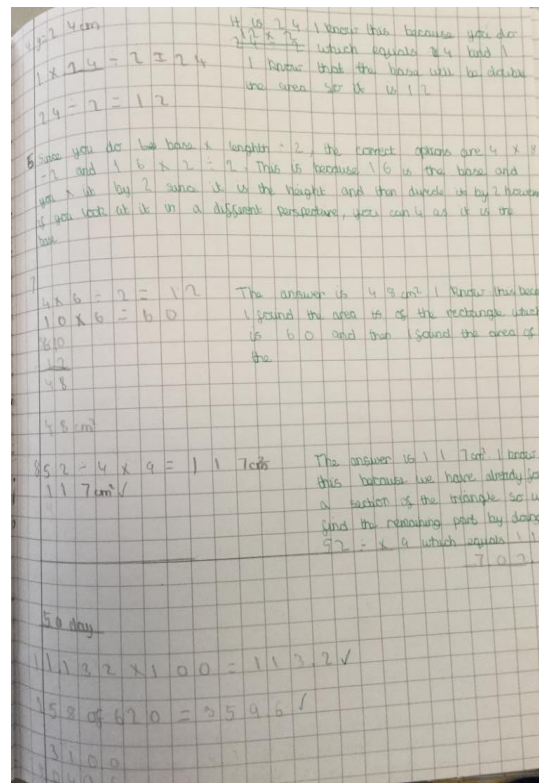 y = 24cm
1 × 24 ÷ 2 = 24
24 ÷ 2 = 12
It is 24 I know this because you do
which equals 24 and I
I know that the base will be double
the area so it is 12
5 Since you do base × lenghth ÷ 2, the correct options are 4 × 8
÷ 2 and 16 × 2 ÷ 2. This is because 16 is the base and
you × it by 2 since it is the height and then divide it by 2 however
if you look at it in a different perspective, you can 4 as it is the
base
7
4 × 6 ÷ 2 = 12
10 × 6 = 60
60
12
48
48 cm²
The answer is 48 cm² I know this beca
I found the area of the rectangle which
is 60 and then I found the area of
the
8 52 ÷ 4 × 9 = 117cm²
117cm² ✓
The answer is 117cm² I know
this because we have already fo
a section of the triangle so w
find the remaining part by doing
52 ÷ × 9 which equals 11
5 a day
1 1.132 × 100 = 113.2 ✓
58 of 620 = 3596 ✓
3100